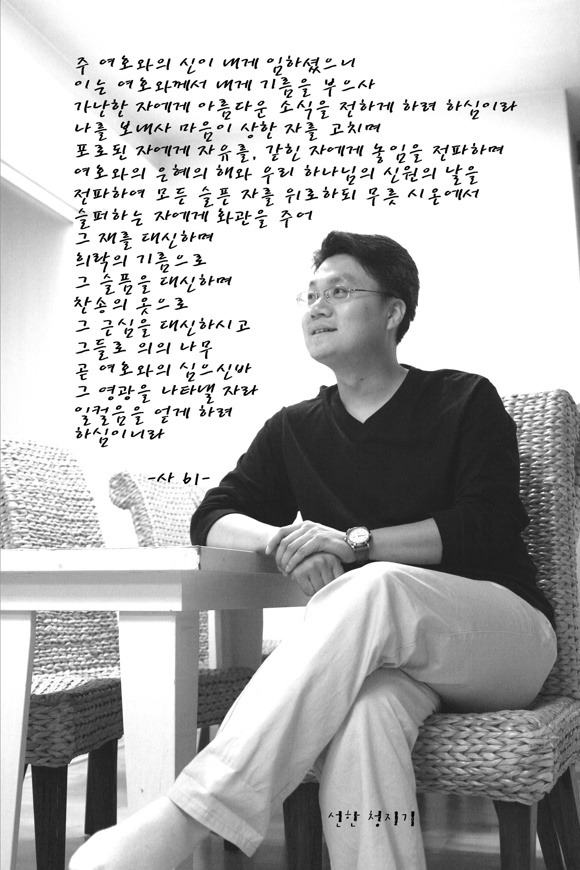 주 여호와의 신이 내게 임하셨으니
이는 여호와께서 내게 기름을 부으사
가난한 자에게 아름다운 소식을 전하게 하려 하심이라
나를 보내사 마음이 상한 자를 고치며
포로된 자에게 자유를, 갇힌 자에게 놓임을 전파하며
여호와의 은혜의 해와 우리 하나님의 신원의 날을
전파하여 모든 슬픈 자를 위로하되 무릇 시온에서
슬퍼하는 자에게 화관을 주어
그 재를 대신하며
희락의 기름으로
그 슬픔을 대신하며
찬송의 옷으로
그 근심을 대신하시고
그들로 의의 나무
곧 여호와의 심으신바
그 영광을 나타낼 자라
일컬음을 얻게 하려
하심이니라
-사 61-
선한 청지기